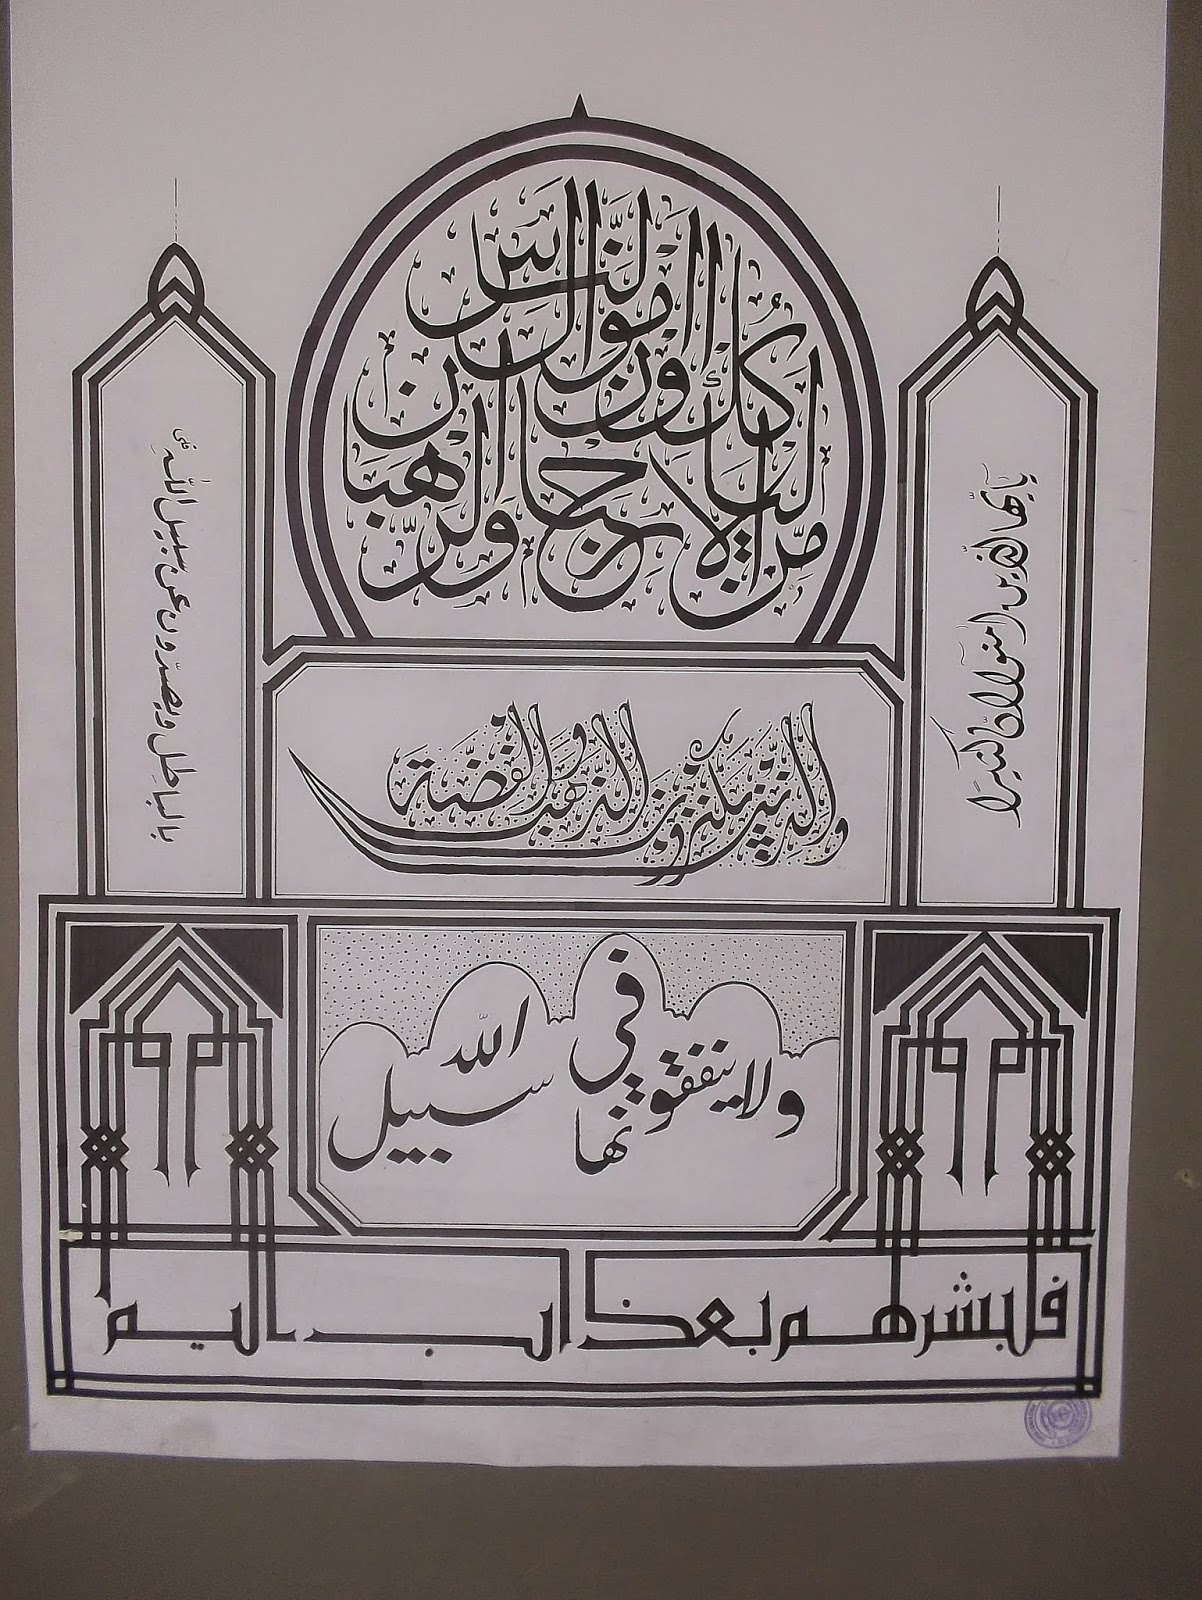 يأيها الذين امنوا ان كثيرا
من الاحبار والرهبان ليأكلون اموال الناس
بالباطل ويصدون عن سبيل الله
والذين يكنزون الذهب والفضة
ولا ينفقونها في سبيل الله
فبشرهم بعذاب اليم